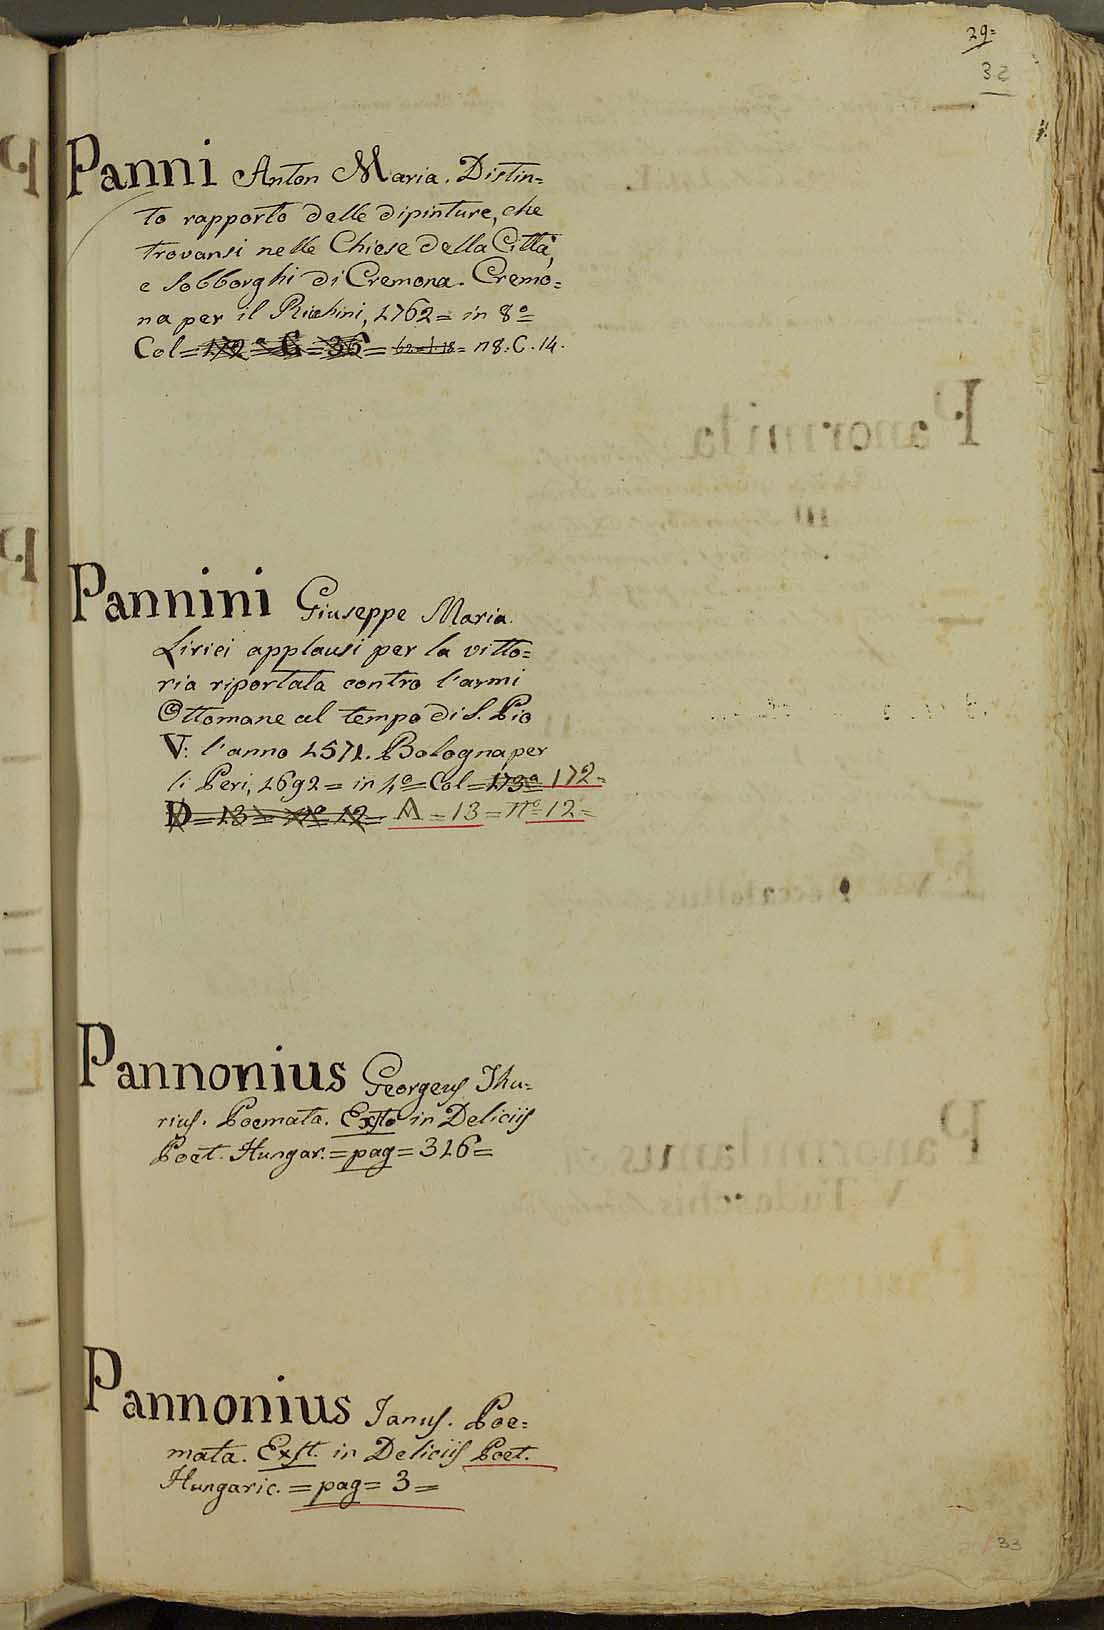 29=
32
Panni Anton Maria. Distin=
to rapporto delle dipinture, che
trovansi nelle Chiese della Città,
e Sobborghi di Cremona. Cremo=
na per il Richini, 1762= in 8º=
Col= 172º= G= 36= n 8. C. 14.
Pannini Giuseppe Maria.
Lirici applausi per la vitto=
ria riportata contro l'armi
Ottomane al tempo di S. Pio
V: l'anno 1571. Bologna, per
li Peri, 1692= in 4º= Col= 173º 172=
D= 13= nº 12= A= 13= nº= 12=
Pannonius Georgeus Thu=
rius. Poemata. Exst. in Deliciis
Poet. Hungar.= pag= 316=
Pannonius Janus. Poe=
mata. Exst. in Deliciis Poet.
Hungaric.= pag= 3=
33